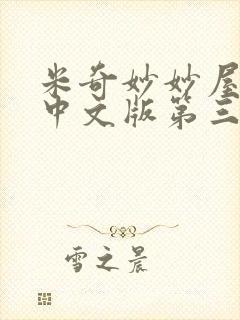 米奇妙妙屋
中文版第三
雪之晨